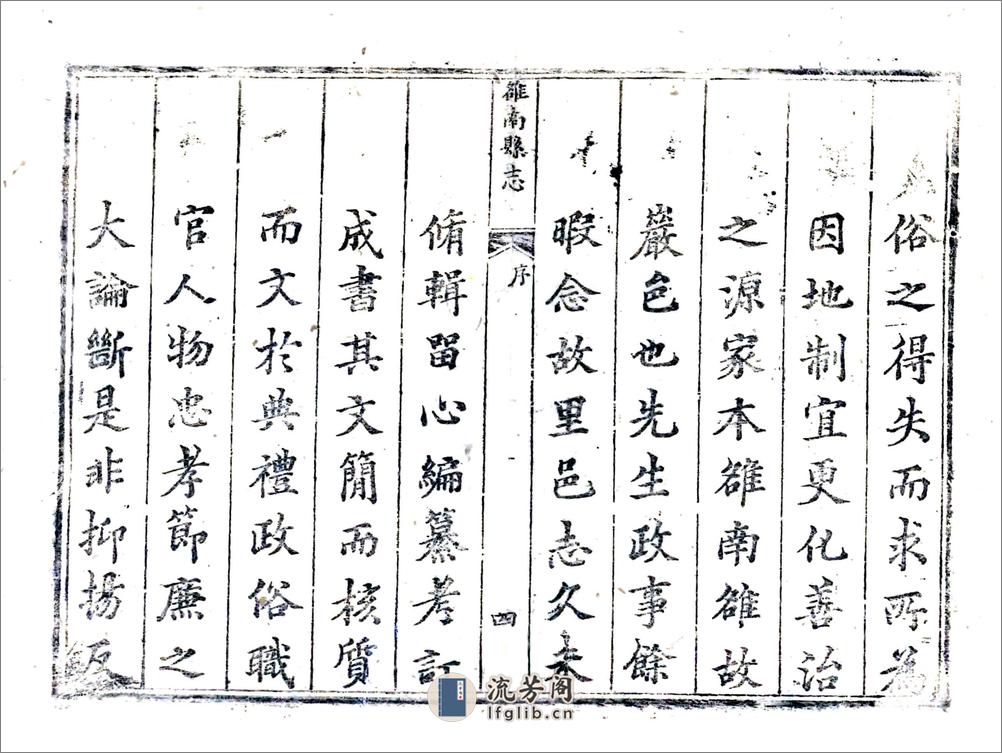 俗之得失而求所為
因地制宜更化善治
之源家本雒南雒故
巖邑也先生政事餘
暇念故里邑志久未
雒南縣志
序
四
脩輯留心編纂考訂
成書其文簡而核質
而文於典禮政俗職
官人物忠孝節廉之
大論斷是非抑揚反
流芳阁
lfglib.cn